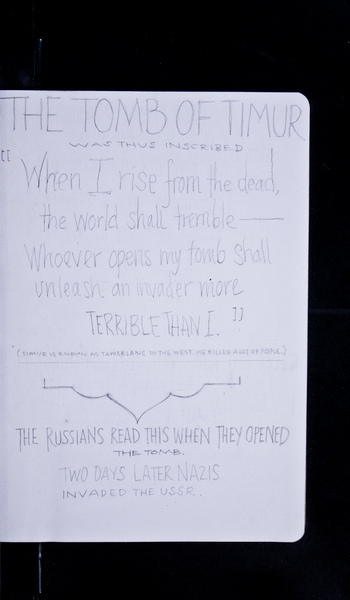 THE TOMB OF TIMUR
WAS THUS INSCRIBED
"When I rise from the dead,
the world shall tremble —
Whoever opens my tomb shall
unleash an invader more
TERRIBLE THAN I."
*(TIMUR IS KNOWN AS TAMERLANE IN THE WEST. HE KILLED A LOT OF PEOPLE.)
THE RUSSIANS READ THIS WHEN THEY OPENED
THE TOMB.
TWO DAYS LATER NAZIS
INVADED THE USSR.